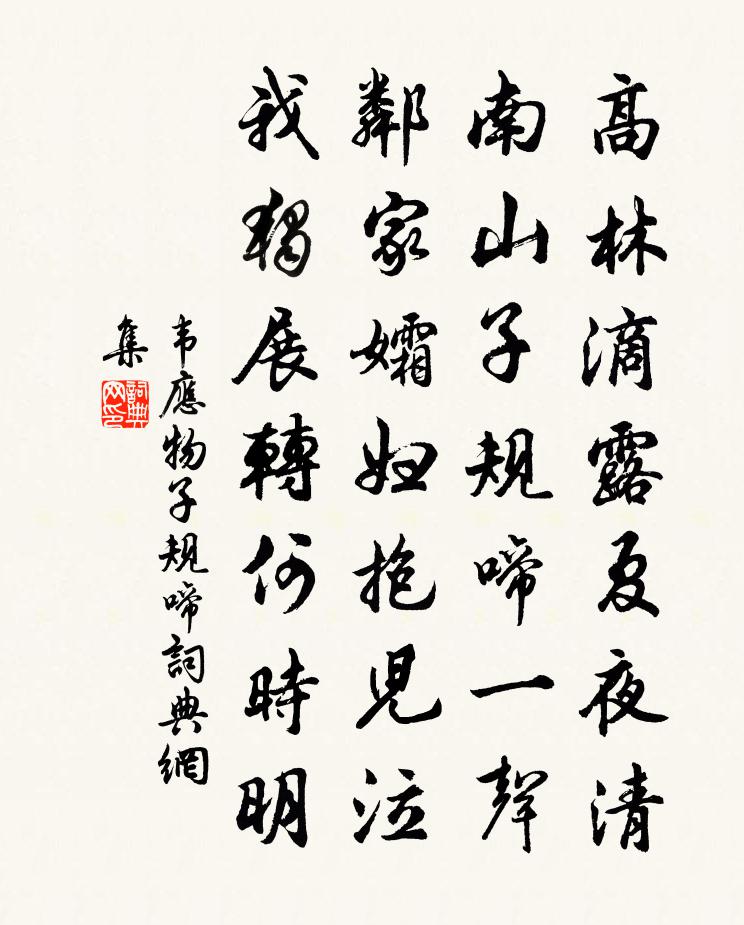 高林滴露夏夜清
南山子規啼一聲
鄰家孀婦抱兒泣
我獨展轉何時明
韦應物子規啼詞典網
集
詞典
网印